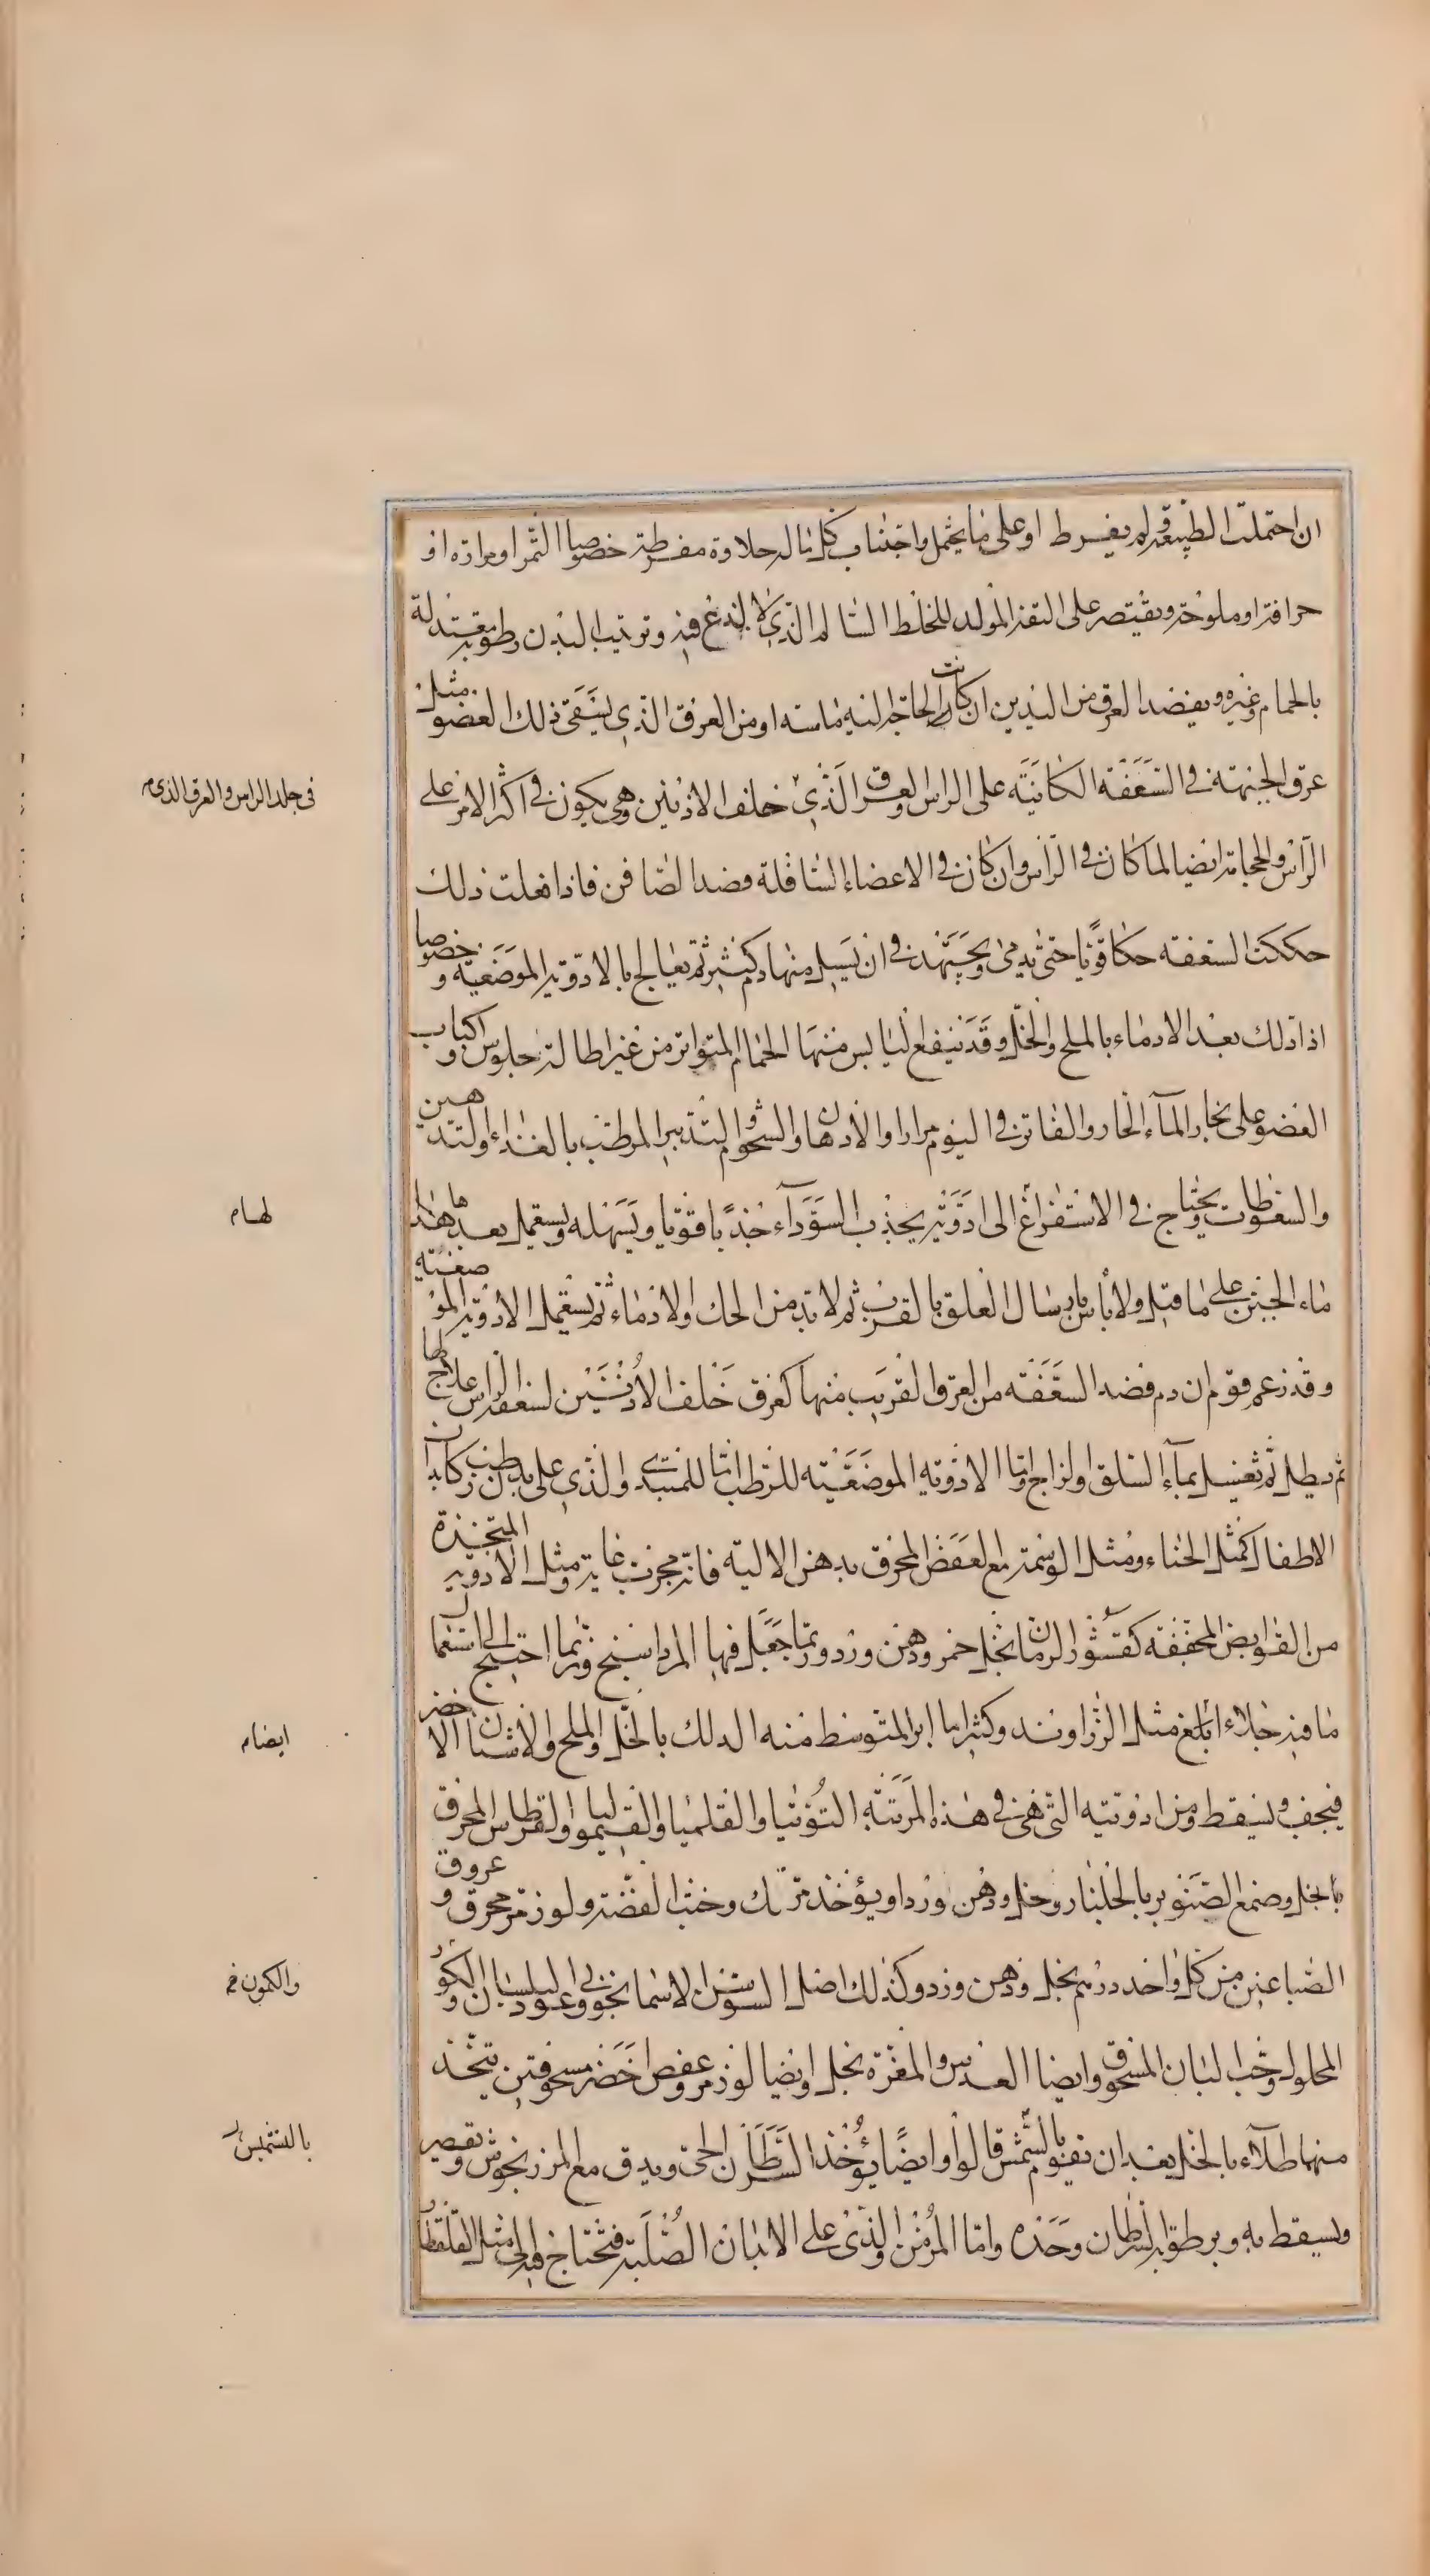 ان احتملت الطبيعة ولم يفرط او على ما يحتمل واجتناب كل ما له حلاوة مفرطة خصوصا التمر او مرارة او
حرافة او ملوحة ويقتصر على التفه المولد للخلط السالم الذى لا لذع فيه وترتيب البدن رطوبة معتدلة
بالحمام وغيره ويفصد العرق من اليدين ان كانت الحاجة اليه ماسة او من العرق الذى يسقى ذلك العضو مثل
عرق الجبهة فى السعفة الكائنة على الراس والعرق الذى خلف الاذنين وهى يكون فى اكثر الامر على
فى جلد الراس والعرق الذى
الراس والحجامة ايضا لما كان فى الراس وان كان فى الاعضاء السافلة فصد الصافن فاذا فعلت ذلك
حككت السعفة حكا قويا حتى يدمى ويجتهد فى ان يسيل منها دم كثير ثم يعالج بالادوية الموضعية وخصوصا
اذا دلك بعد الادماء بالملح والخل وقد ينفع اليابس منها الحمام المتواتر من غير اطالة جلوس واكباب
العضو على بخار الماء الحار والفاتر فى اليوم مرارا والادهان والشحوم والتدبير المرطب بالغذاء والتدهين
والسعوطات ويحتاج فى الاستفراغ الى ادوية يجذب السوداء جذبا قويا ويسهله ويستعمل بعدها هذا
لها م
ماء الجبن على ما قيل ولا بأس بارسال العلق بالقرب ثم لا بد من الحك والادماء ثم يستعمل الادوية الموضعية
وقد زعم قوم ان دم فصد السعفة من العرق القريب منها كعرق خلف الاذنين لسعفة الراس علاج لها
ثم يطلى ثم يغسل بماء السلق والزاج واما الادوية الموضعية للرطب اما للمبتدى والذى على بدن رطب كابدان
الاطفال كمثل الحناء ومثل الوسمة مع العفص المحرق بدهن الالية فانه مجرب غاية ومثل الادوية المتخذة
من القوابض المجففة كقشور الرمان بخل خمر ودهن ورد وربما جعل فيها المرداسنج وربما احتيج الى استعمال
ما فيه جلاء ابلغ مثل الزراوند وكثيرا ما ابرا المتوسط منه الدلك بالخل والملح والاشنان الاخضر
ايضا م
فيجف ويسقط ومن ادويته التى هى فى هذه المرتبة التوتيا والقلميا والقيموليا والقرطاس المحرق
بالخل وصمغ الصنوبر بالجلنار وخل ودهن ورد او يؤخذ مرتك وخبث الفضة ولوز مر محرق وعروق
الصباغين من كل واحد درهم بخل ودهن ورد وكذلك اصل السوسن الاسمانجونى وعود البلسان والكور
والكمون
المحلول وحب لبان المسحوق وايضا العدس والمغرة بخل وايضا لوز مر وعفص اخضر مسحوقتين يتخذ
منهما طلاء بالخل بعد ان يقوم بالشمس قالوا وايضا يؤخذ السرطان الحى ويدق مع المرزنجوش ويعصر
بالتشميس
ويسقط به وبرطوبة السرطان وحده واما المزمن والذى على الابدان الصلبة فتحتاج فيه الى مثل القلقطار